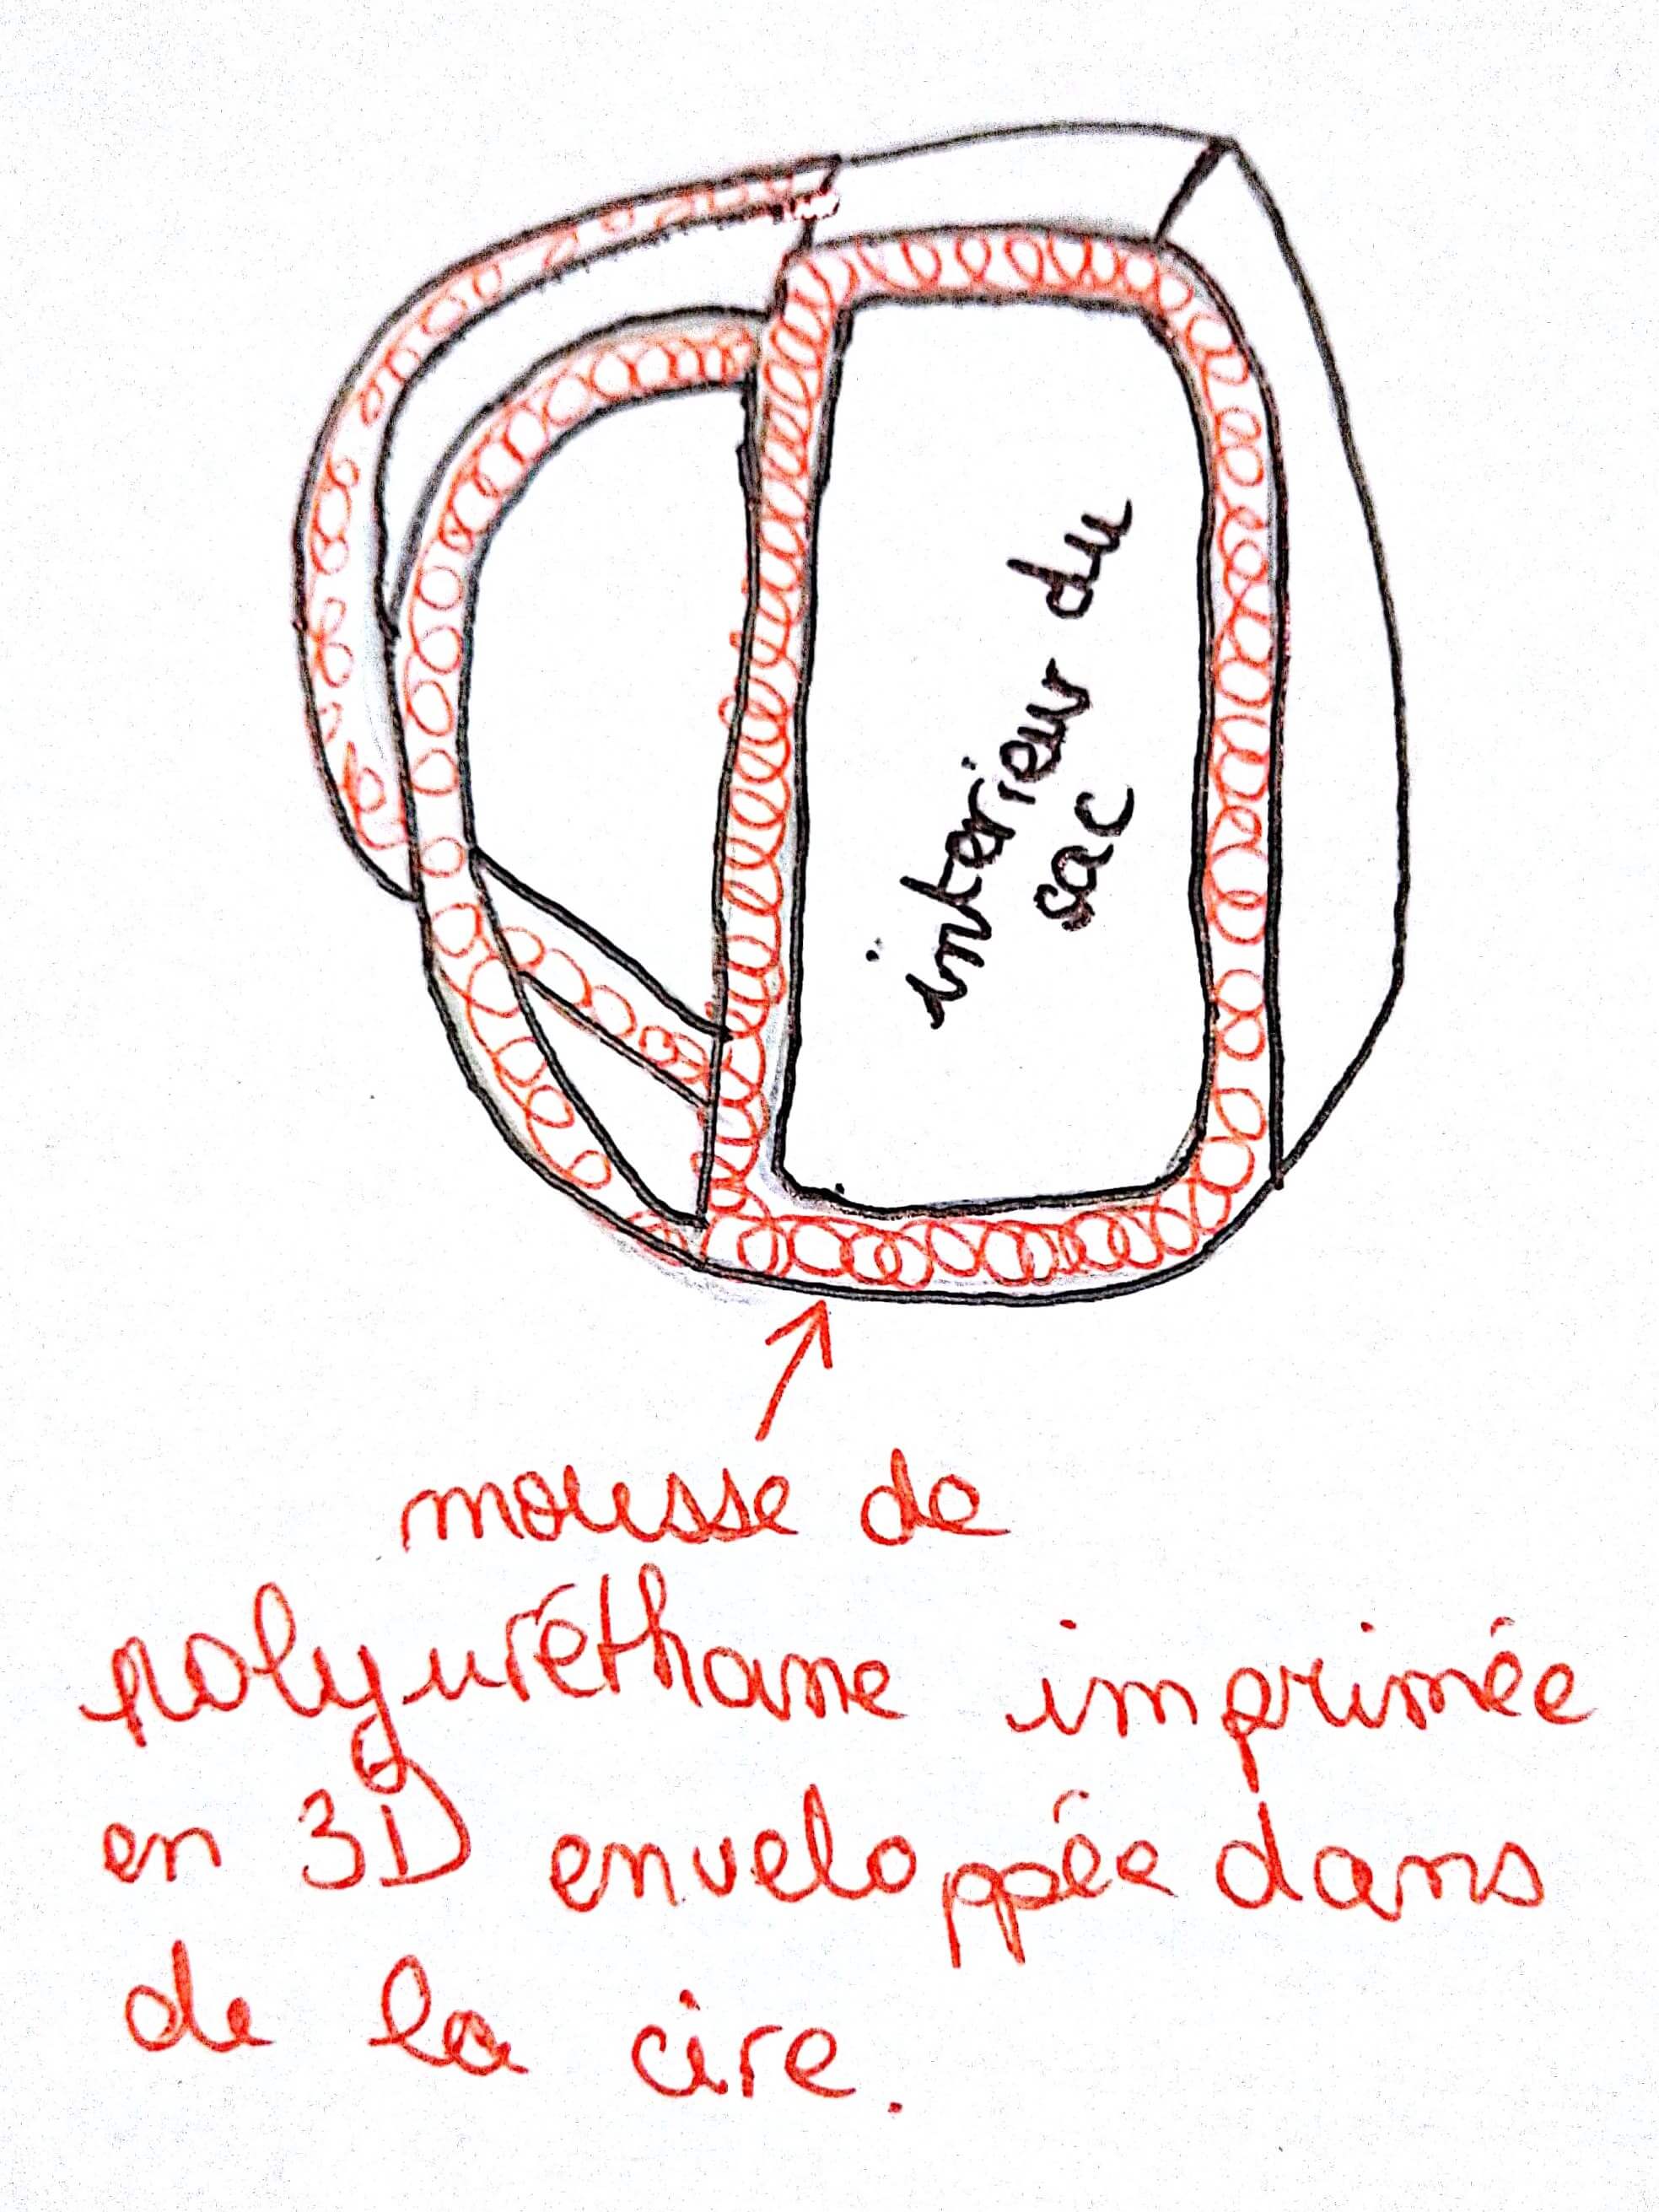 intérieur du
sac
mousse de
polyuréthane imprimée
en 3D enveloppée dans
de la cire.